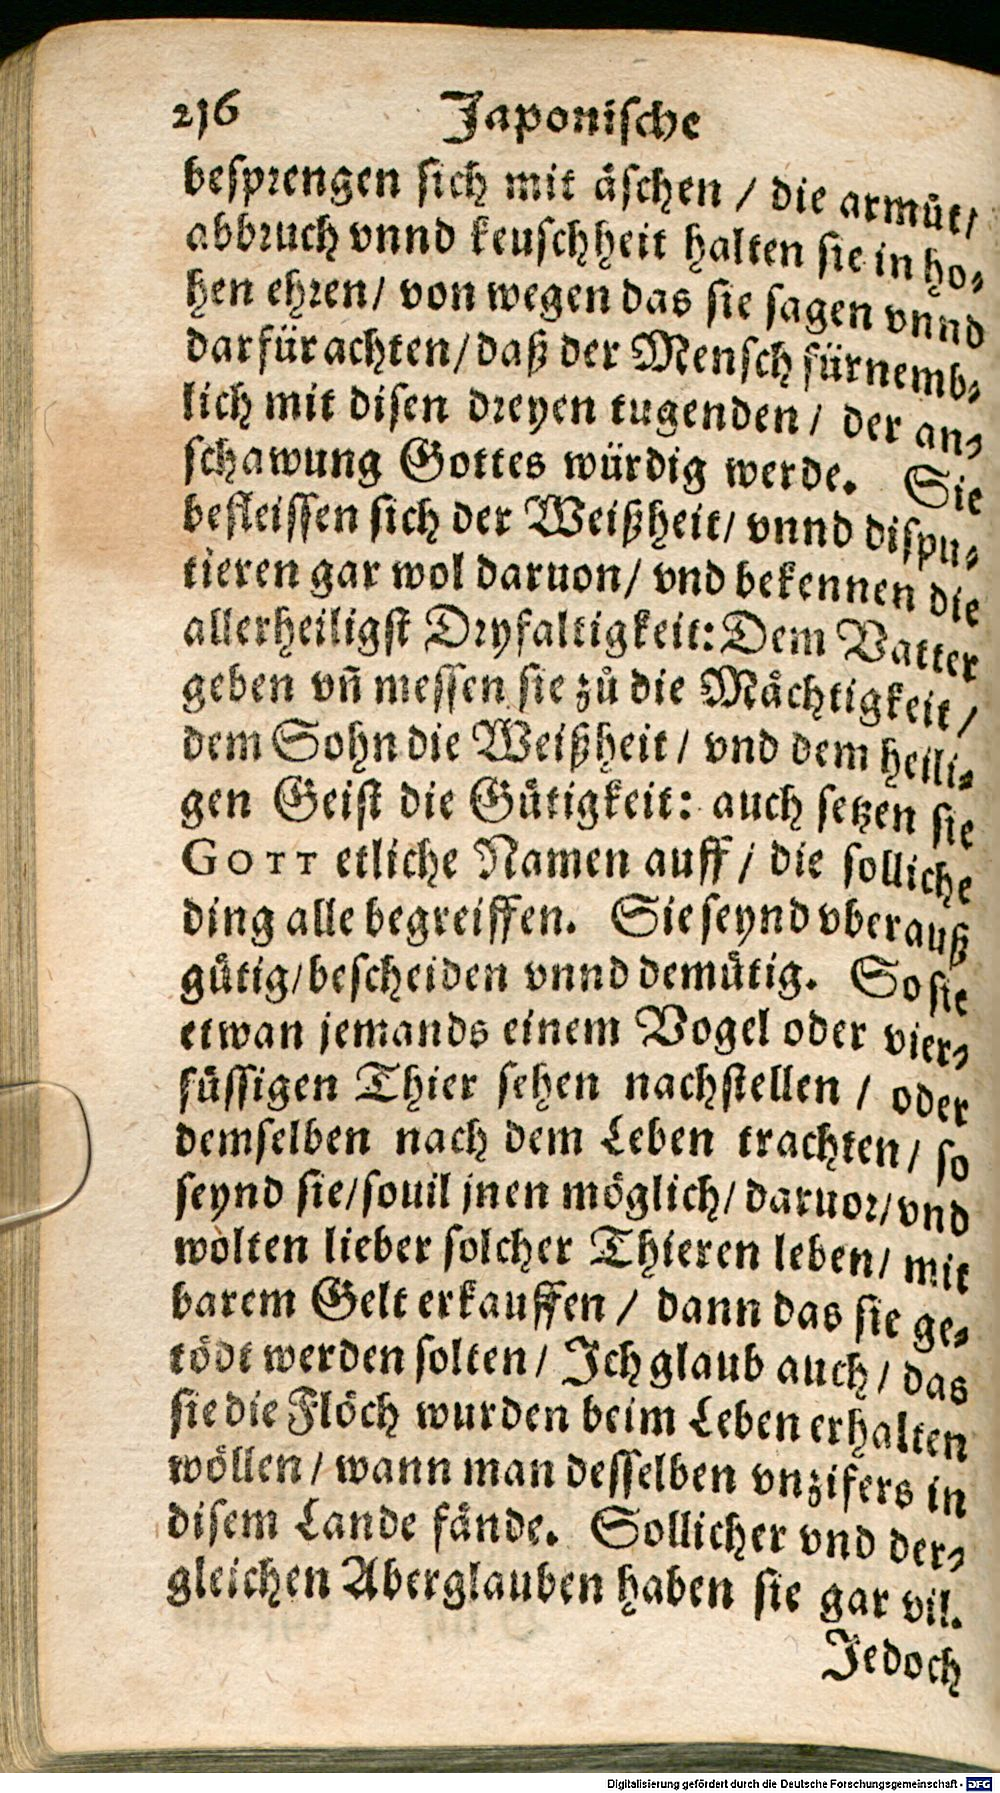 216 Japonische
besprengen sich mit äschen / die armůt/
abbruch vnnd keuschheit halten sie in ho-
hen ehren/ von wegen das sie sagen vnnd
darfür achten/ daß der Mensch fürnemb-
lich mit disen dreyen tugenden / der an-
schawung Gottes würdig werde. Sie
befleissen sich der Weißheit/ vnnd dispu-
tieren gar wol daruon/ vnd bekennen die
allerheiligst Dryfaltigkeit: Dem Vatter
geben vñ messen sie zů die Mächtigkeit /
dem Sohn die Weißheit / vnd dem heili-
gen Geist die Gütigkeit: auch setzen sie
GOTT etliche Namen auff / die solliche
ding alle begreiffen. Sie seynd vberauß
gütig/ bescheiden vnnd demütig. So sie
etwan jemands einem Vogel oder vier-
füssigen Thier sehen nachstellen / oder
demselben nach dem Leben trachten/ so
seynd sie/ souil jnen möglich/ daruor/ vnd
wolten lieber solcher Thieren leben/ mit
barem Gelt erkauffen / dann das sie ge-
tödt werden solten/ Ich glaub auch / das
sie die Flöch wurden beim Leben erhalten
wöllen / wann man desselben vnzifers in
disem Lande fände. Sollicher vnd der-
gleichen Aberglauben haben sie gar vil.
Jedoch
Digitalisierung gefördert durch die Deutsche Forschungsgemeinschaft - DFG